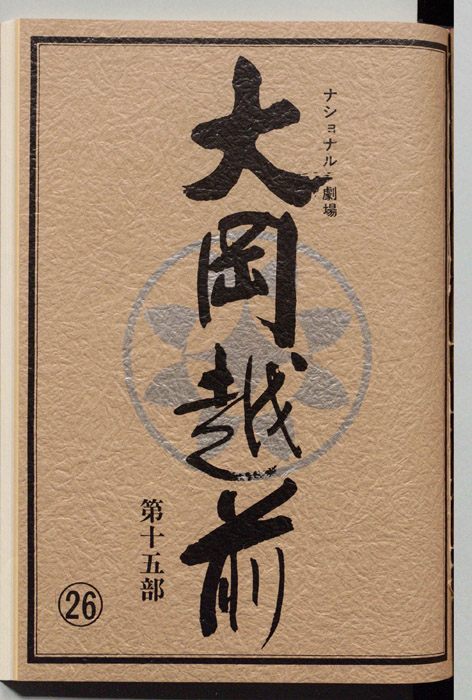 ナショナル劇場
大岡越前
第十五部
26